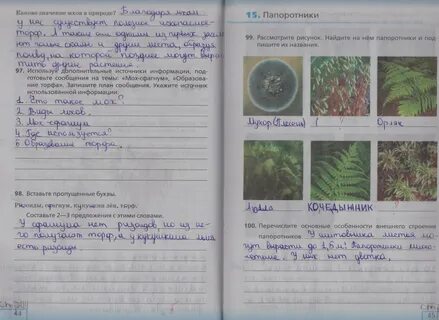 Каково значение мхов в природе? Благодаря мхам
у нас существует полезное ископаемое
торф. А также они одними из первых засе
ляют голые скалы и другие места, образуя
почву, на которой позднее могут вырас
тить другие растения.
97. Используя дополнительные источники информации, под-
готовьте сообщения на темы: «Мох-сфагнум», «Образова-
ние торфа». Запишите план сообщения. Укажите источник
использованной информации.
1. Что такое мох?
2. Виды мхов.
3. Мох-сфагнум
4. Где используется?
5. Образование торфа.
98. Вставьте пропущенные буквы.
Ризоиды, сфагнум, кукушкин лён, торф.
Составьте 2—3 предложения с этими словами.
У сфагнума нет ризоидов но из не
го получают торф, а у кукушкина льна
есть ризоиды.
44
15. Папоротники
99. Рассмотрите рисунок. Найдите на нём папоротники и под-
пишите их названия.
Мухор (Плесень)
Орляк
КОЧЕДЫЖНИК
100. Перечислите основные особенности внешнего строения
папоротников. У щитовника листья мо
гут вырасти до 1,5м! Папоротники много
летние. У них нет цветка.
45